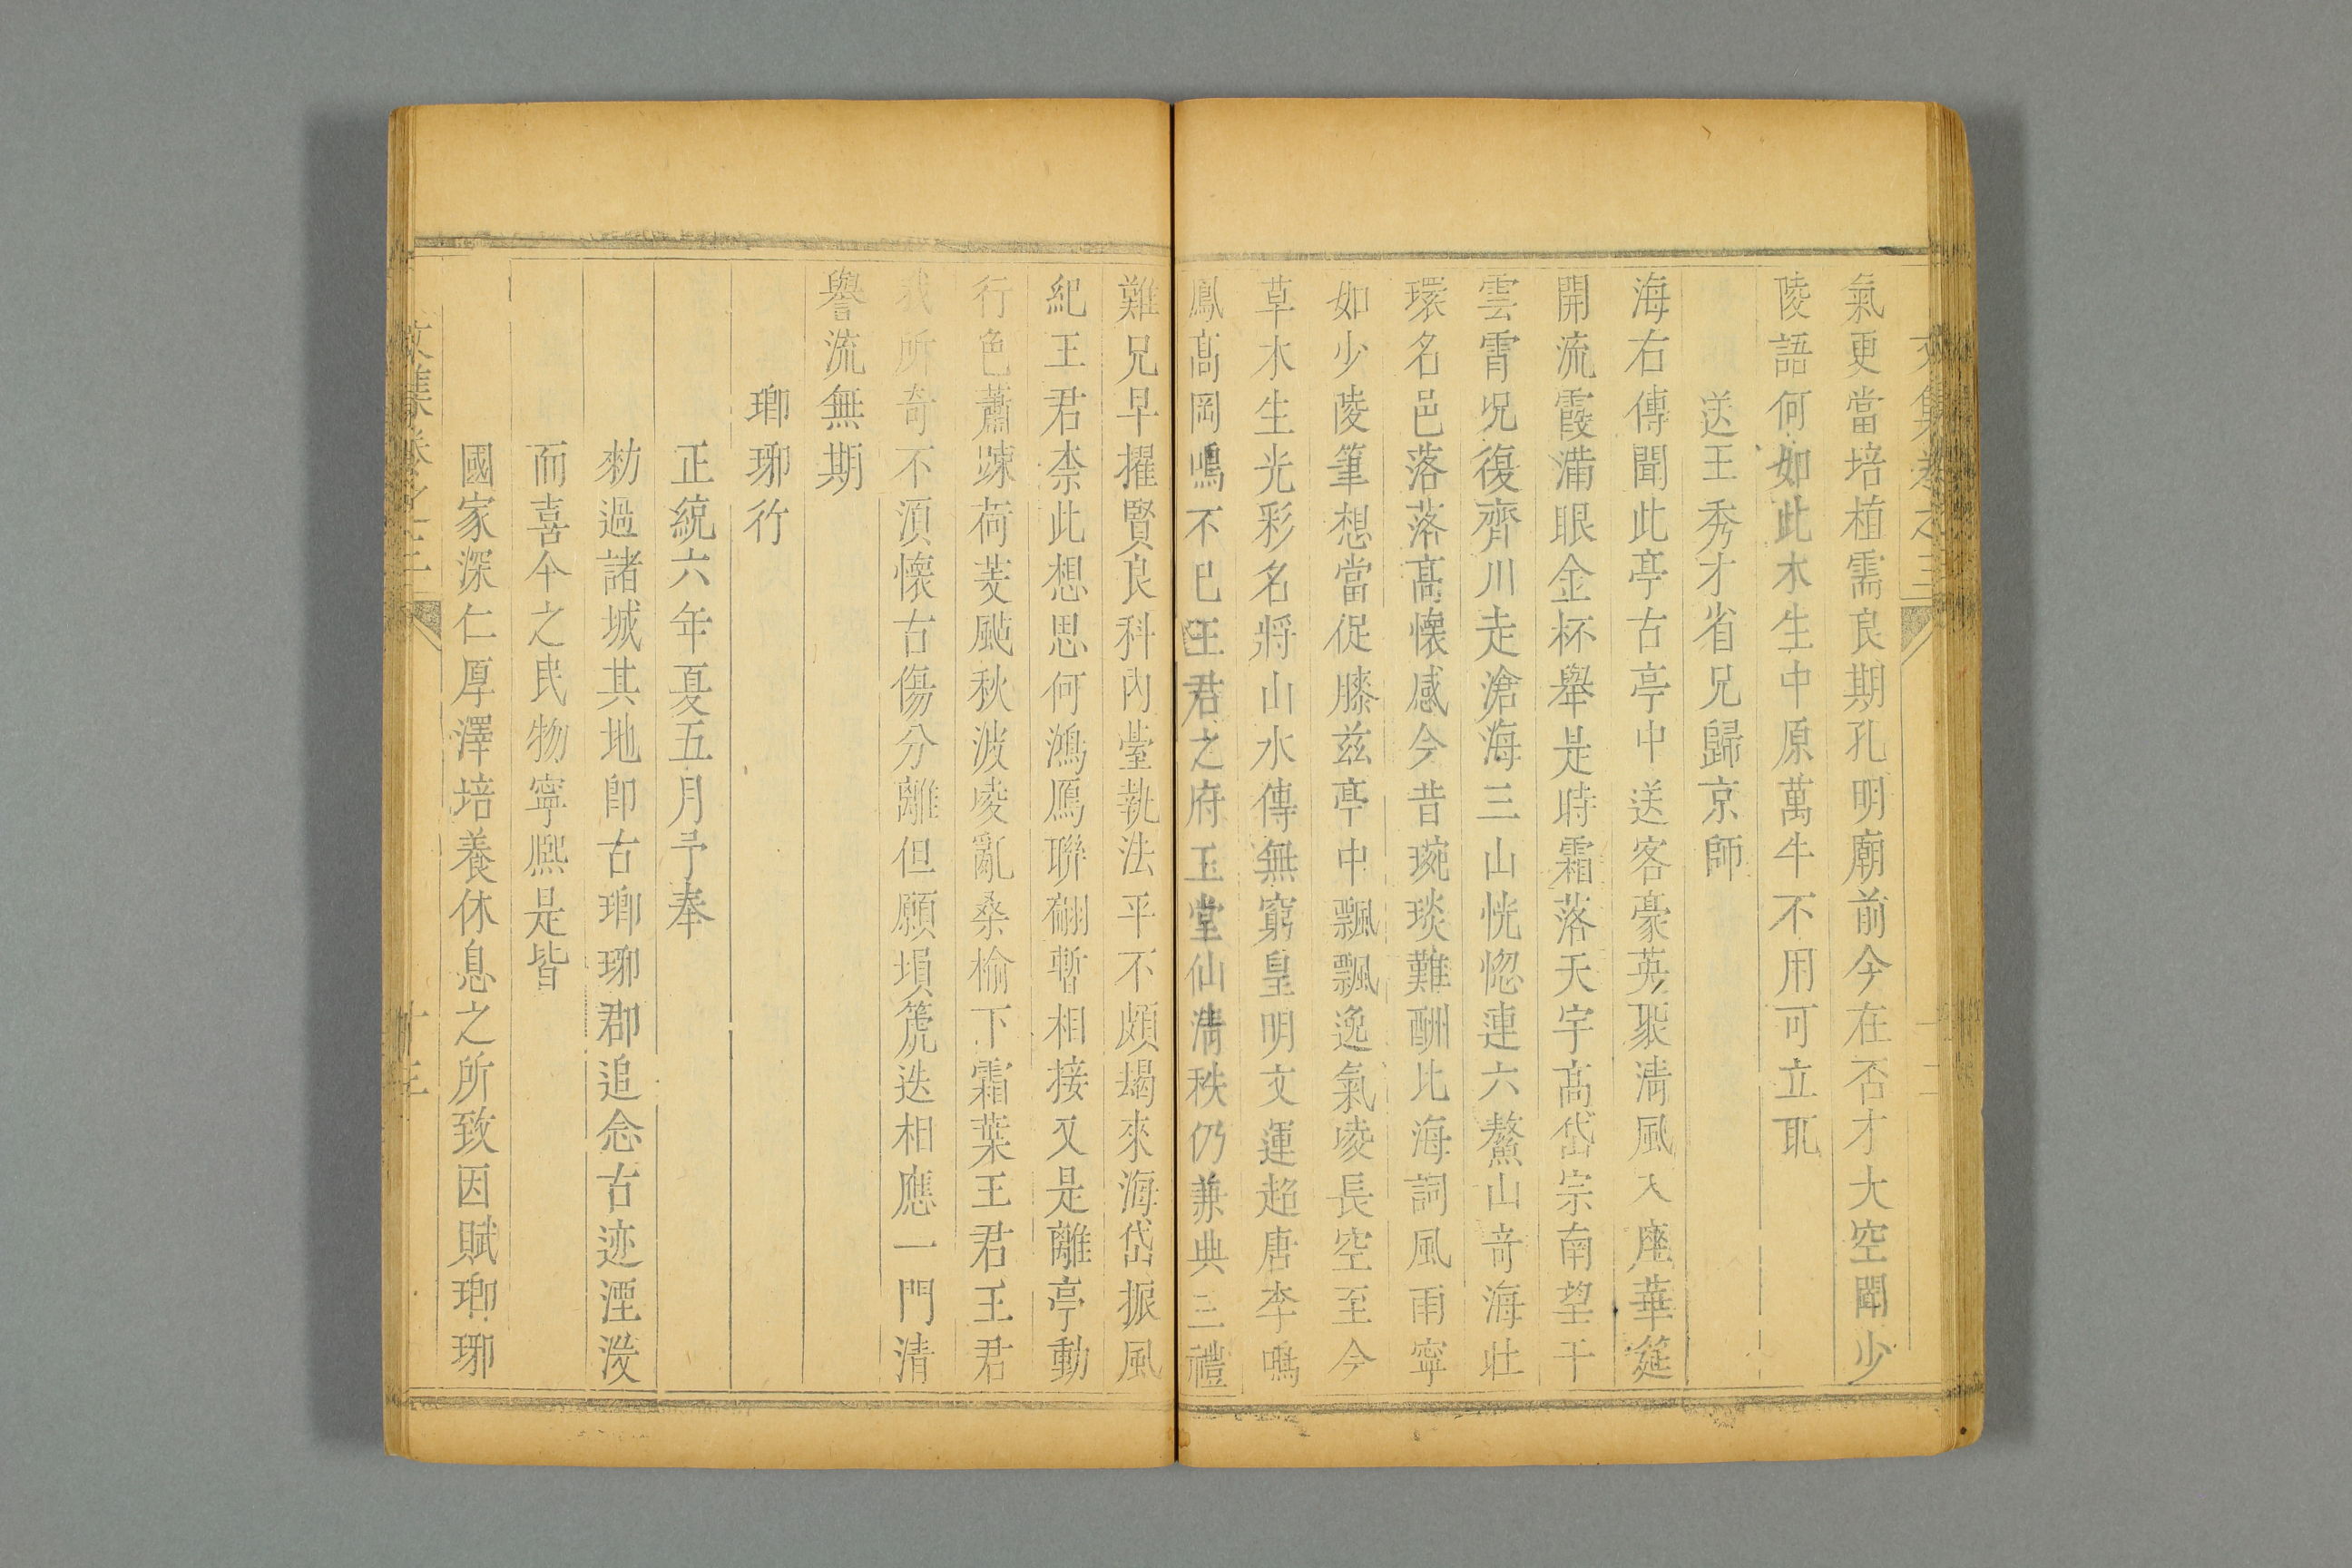 文集卷之三
十二
氣更當培植需良期孔明廟前今在否才大空聞少
陵語何如此木生中原萬牛不用可立取
送王秀才省兄歸京師
海右傳聞此亭古亭中送客豪英聚清風入座華筵
開流霞滿眼金杯舉是時霜落天宇高岱宗南望干
雲霄况復齊川走滄海三山恍惚連六鰲山竒海壮
環名邑落落髙懷感今昔琬琰難酬北海詞風雨寧
如少陵筆想當促膝兹亭中飄飄逸氣凌長空至今
草木生光彩名將山水傳無窮皇明文運超唐李鳴
鳳髙岡鳴不已王君之府玉堂仙清秩仍兼典三禮
難兄早擢賢良科内臺執法平不頗朅來海岱振風
紀王君柰此想思何鴻鴈聯翩暫相接又是離亭動
行色蕭踈荷芰颭秋波凌亂桑榆下霜葉王君王君
我所竒不須懷古傷分離但願塤箎迭相應一門清
譽流無期
瑯琊行
正統六年夏五月予奉
勑過諸城其地即古瑯琊郡追念古迹湮没
而喜今之民物寧熈是皆
國家深仁厚澤培養休息之所致因賦瑯琊
文集卷之三
十三